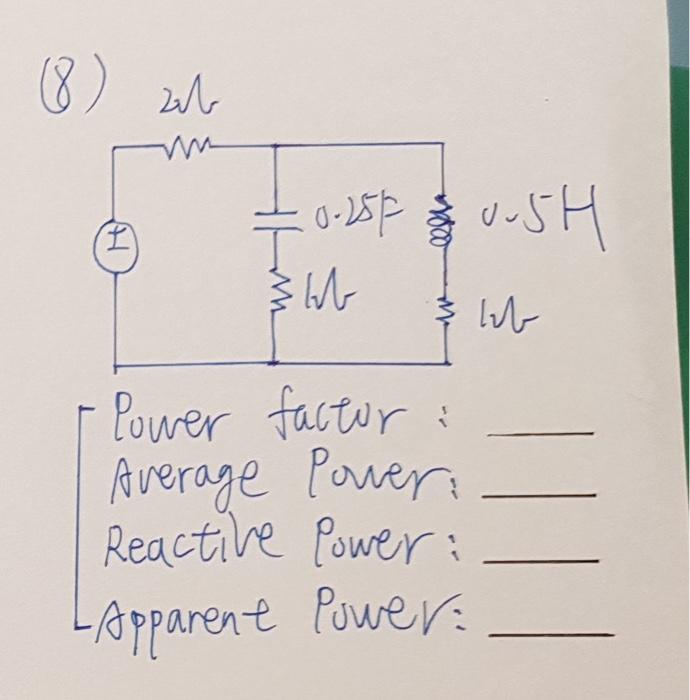 (8)
2Ω
±
0.25F
0.5H
1Ω
1Ω
Power factor :
Average Power:
Reactive Power:
Apparent Power: